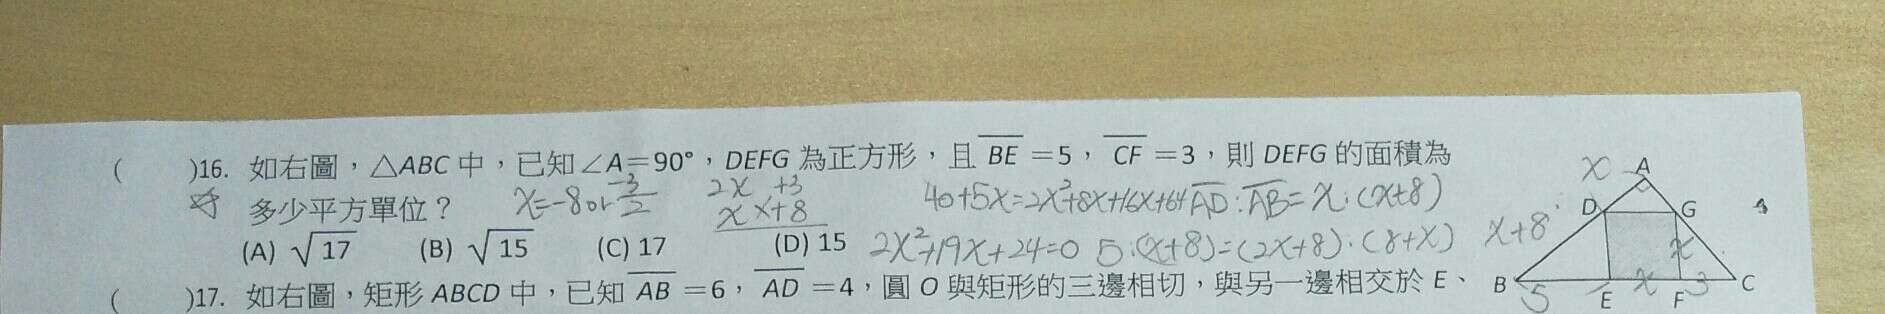 ( )16. 如右圖，△ABC 中，已知∠A=90°，DEFG 為正方形，且 BE =5， CF =3，則 DEFG 的面積為
多少平方單位？ x=-8or -3/2 2x +3 40+5x=2x²+8x+16x+64 AD:AB=x:(x+8)
x x+8
(A) √17 (B) √15 (C) 17 (D) 15 2x²+19x+24=0 5:(x+8)=(2x+8):(8+x)
( )17. 如右圖，矩形 ABCD 中，已知 AB =6， AD =4，圓 O 與矩形的三邊相切，與另一邊相交於 E、
x A
D G
x+8 x
B 5 E x F 3 C